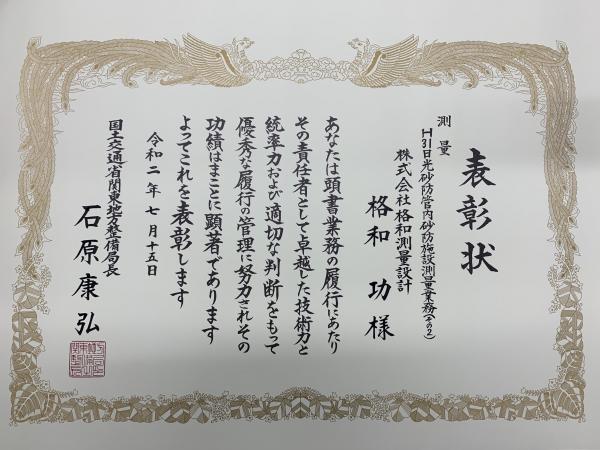 表彰状
測量
H31日光砂防管内砂防施設測量業務(その2)
株式会社格和測量設計
格和 功 様
あなたは頭書業務の履行にあたり
その責任者として卓越した技術力と
統率力および適切な判断をもって
優秀な履行の管理に努力されその
功績はまことに顕著であります
よってこれを表彰します
令和二年七月十五日
国土交通省関東地方整備局長
石原康弘